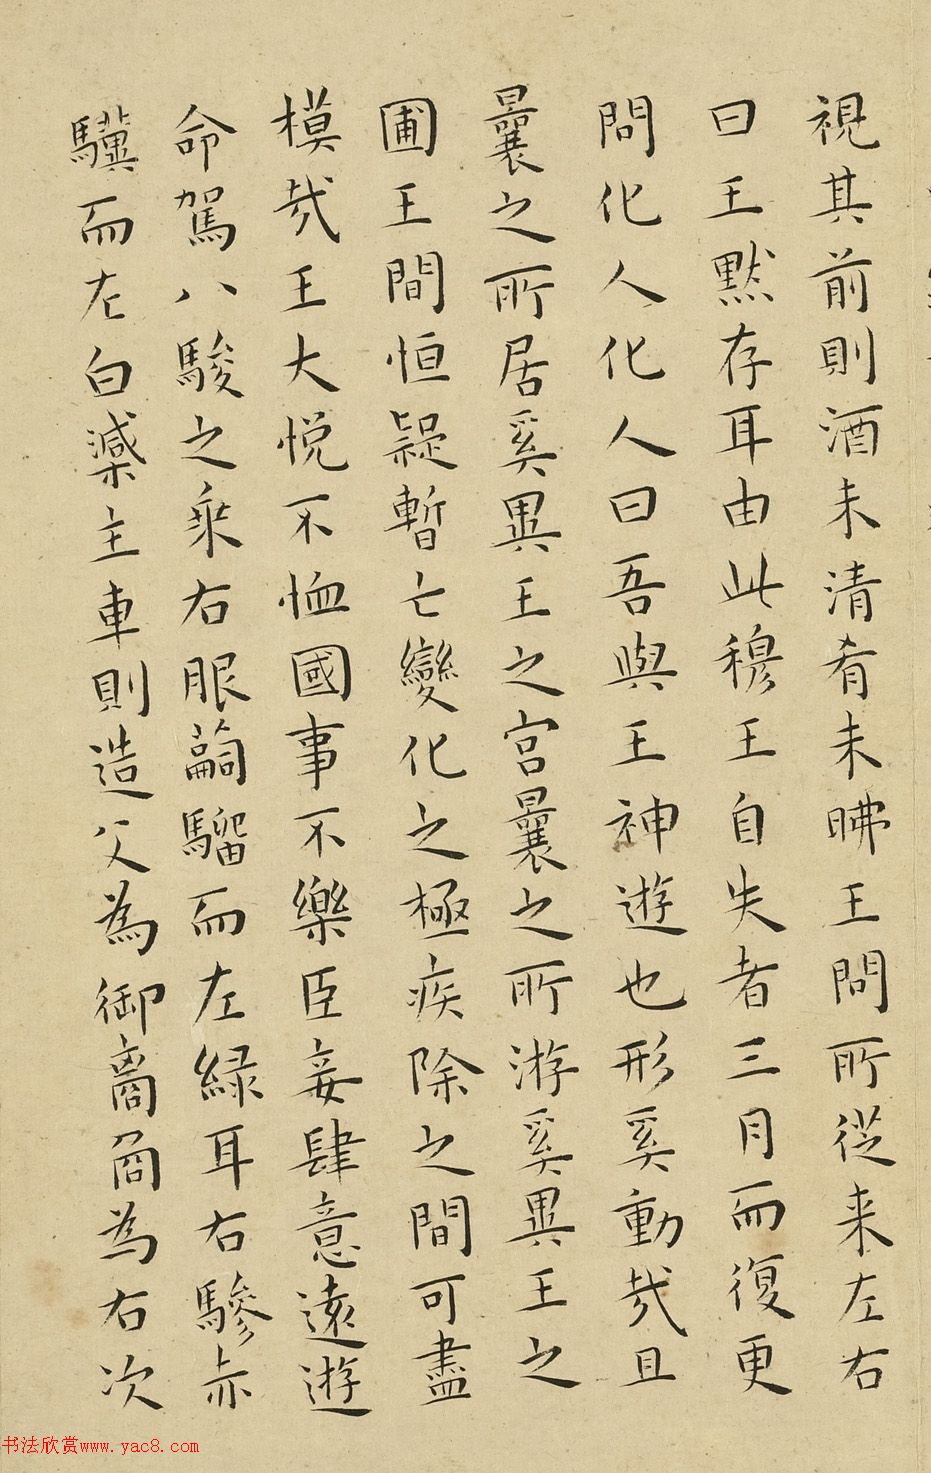 視其前則酒未清肴未昲王問所從来左右
曰王默存耳由此穆王自失者三月而復更
問化人化人曰吾與王神遊也形奚動哉且
曩之所居奚異王之宫曩之所游奚異王之
圃王間恒疑蹔亡變化之極疾除之間可盡
模哉王大悦不恤國事不樂臣妾肆意遠遊
命駕八駿之乗右服䮷騮而左緑耳右驂赤
驥而左白㵐主車則造父為御𦎍㒼為右次
书法欣赏www.yac8.com